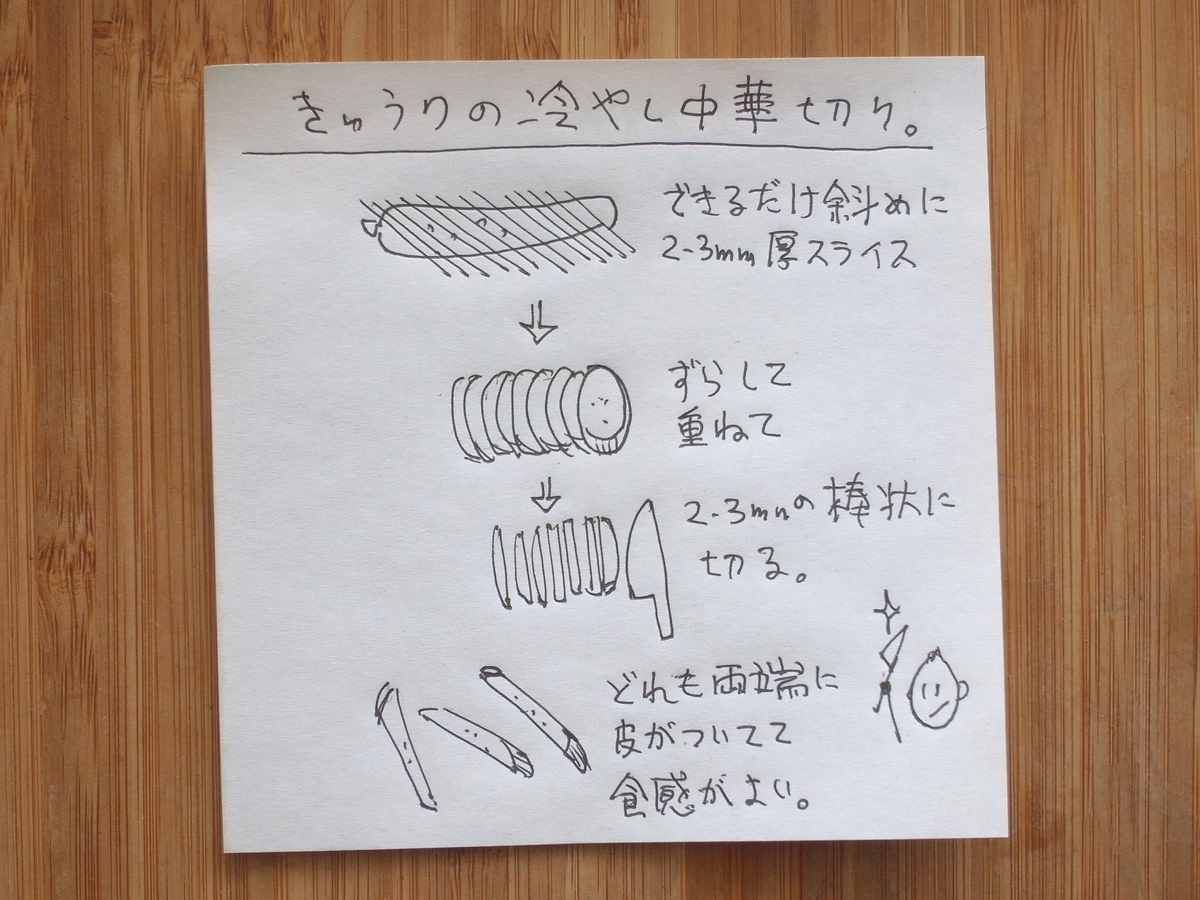 きゅうりの冷やし中華切り。
できるだけ斜めに
2-3mm厚スライス
ずらして
重ねて
2-3mmの棒状に
切る。
どれも両端に
皮がついてて
食感がよい。